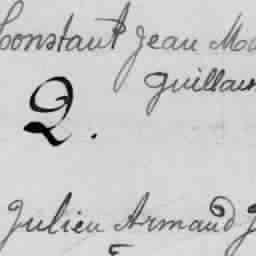 Constant Jean
Guillau
2.
Julien Armand